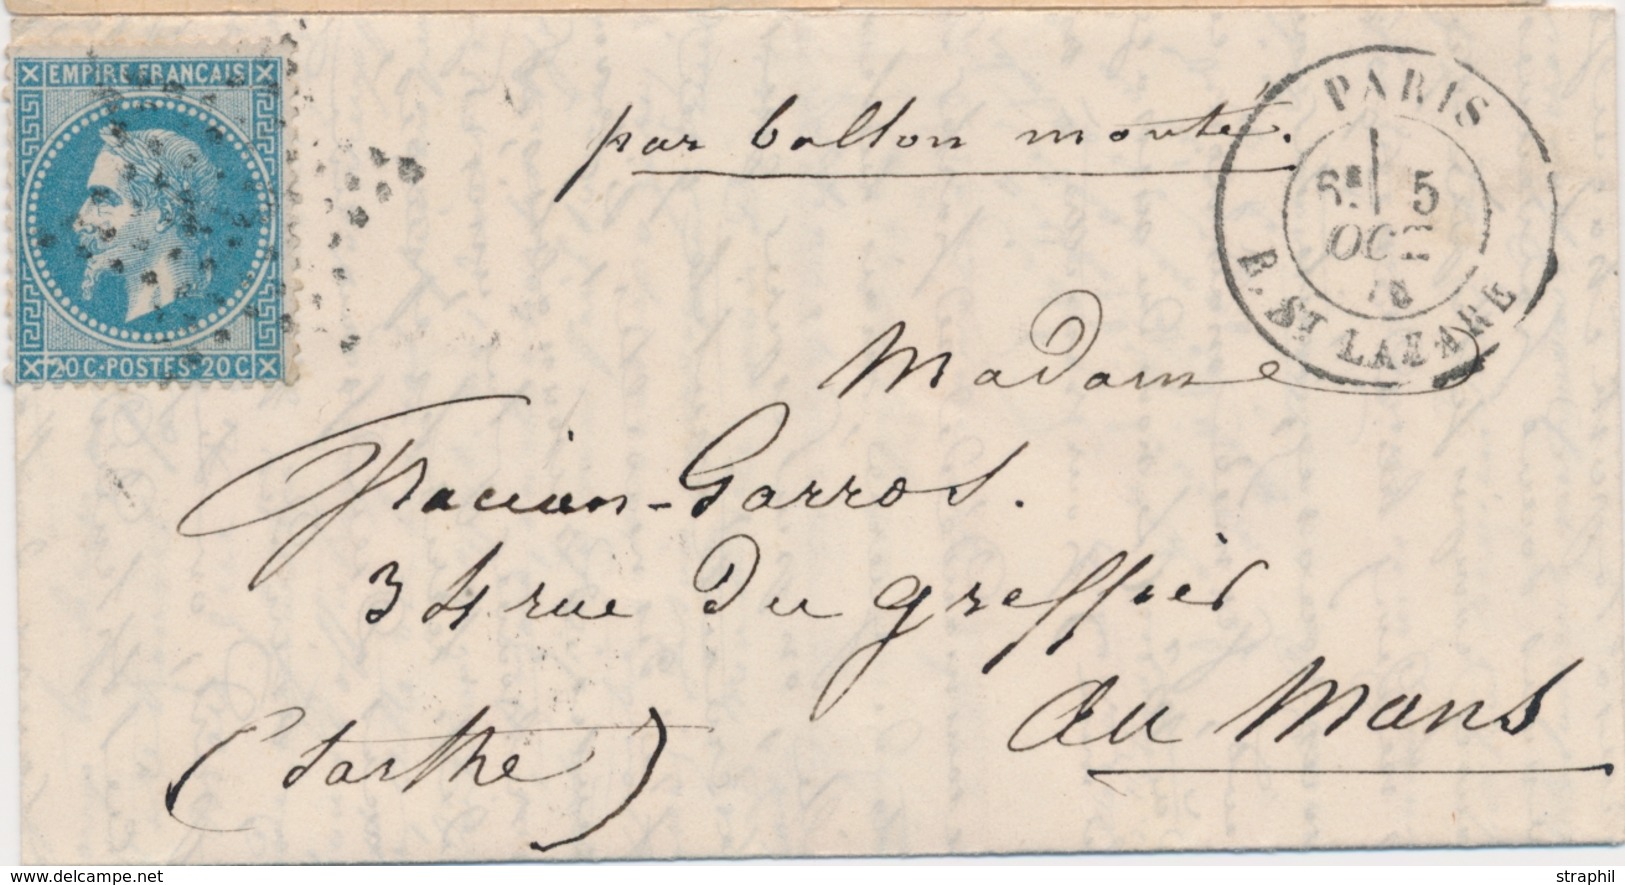 EMPIRE FRANCAIS
20 C · POSTES · 20 C
par ballon monté.
PARIS
5
OCT
R. ST LAZARE
Madame
Garros.
34 rue du greffier
au Mans
(Sarthe)
delcampe.net
straphil